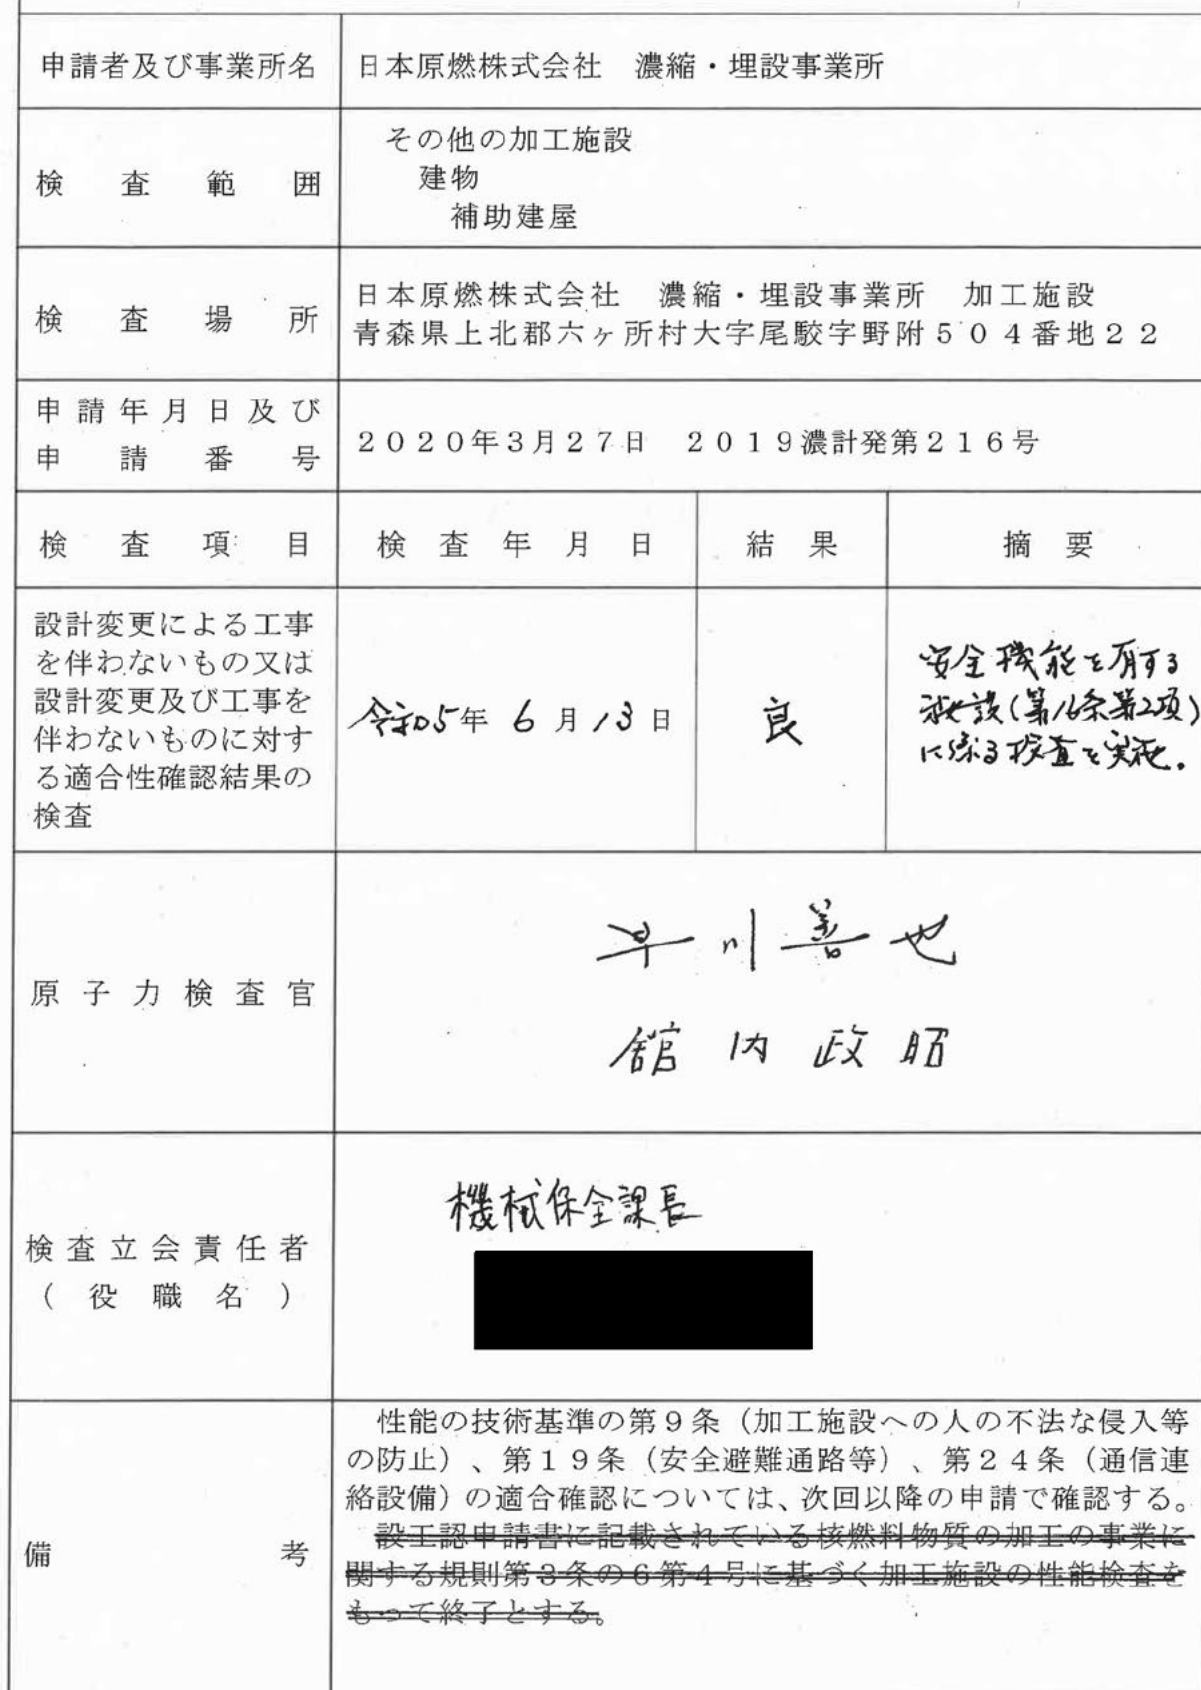 申請者及び事業所名
日本原燃株式会社　濃縮・埋設事業所
検査範囲
その他の加工施設
建物
補助建屋
検査場所
日本原燃株式会社　濃縮・埋設事業所　加工施設
青森県上北郡六ヶ所村大字尾駮字野附５０４番地２２
申請年月日及び
申請番号
２０２０年３月２７日　２０１９濃計発第２１６号
検査項目
検査年月日
結果
摘要
設計変更による工事
を伴わないもの又は
設計変更及び工事を
伴わないものに対す
る適合性確認結果の
検査
令和5年 6 月 13 日
良
安全機能を有する
施設(第16条第2項)
に係る検査を実施。
原子力検査官
早川善也
舘内政昭
検査立会責任者
（役職名）
機械保全課長
備考
性能の技術基準の第９条（加工施設への人の不法な侵入等
の防止）、第１９条（安全避難通路等）、第２４条（通信連
絡設備）の適合確認については、次回以降の申請で確認する。
設工認申請書に記載されている核燃料物質の加工の事業に
関する規則第３条の６第４号に基づく加工施設の性能検査を
もって終了とする。